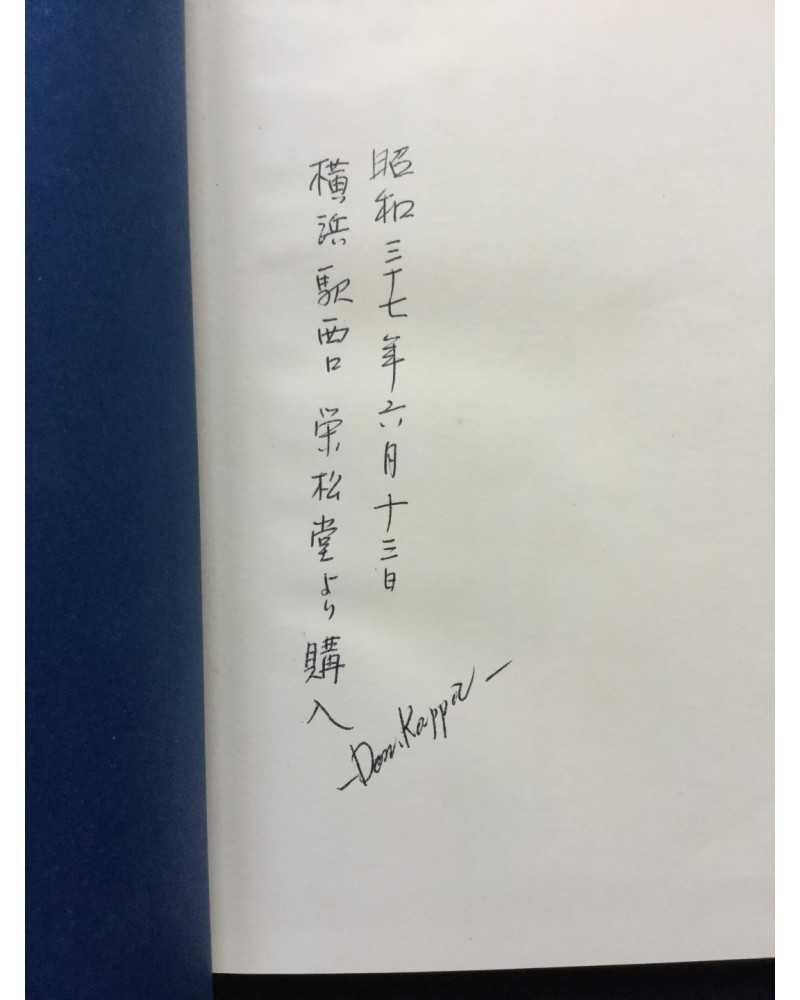 昭和三十七年六月十三日
横浜駅西口 栄松堂より購入
-Don.Kappa-